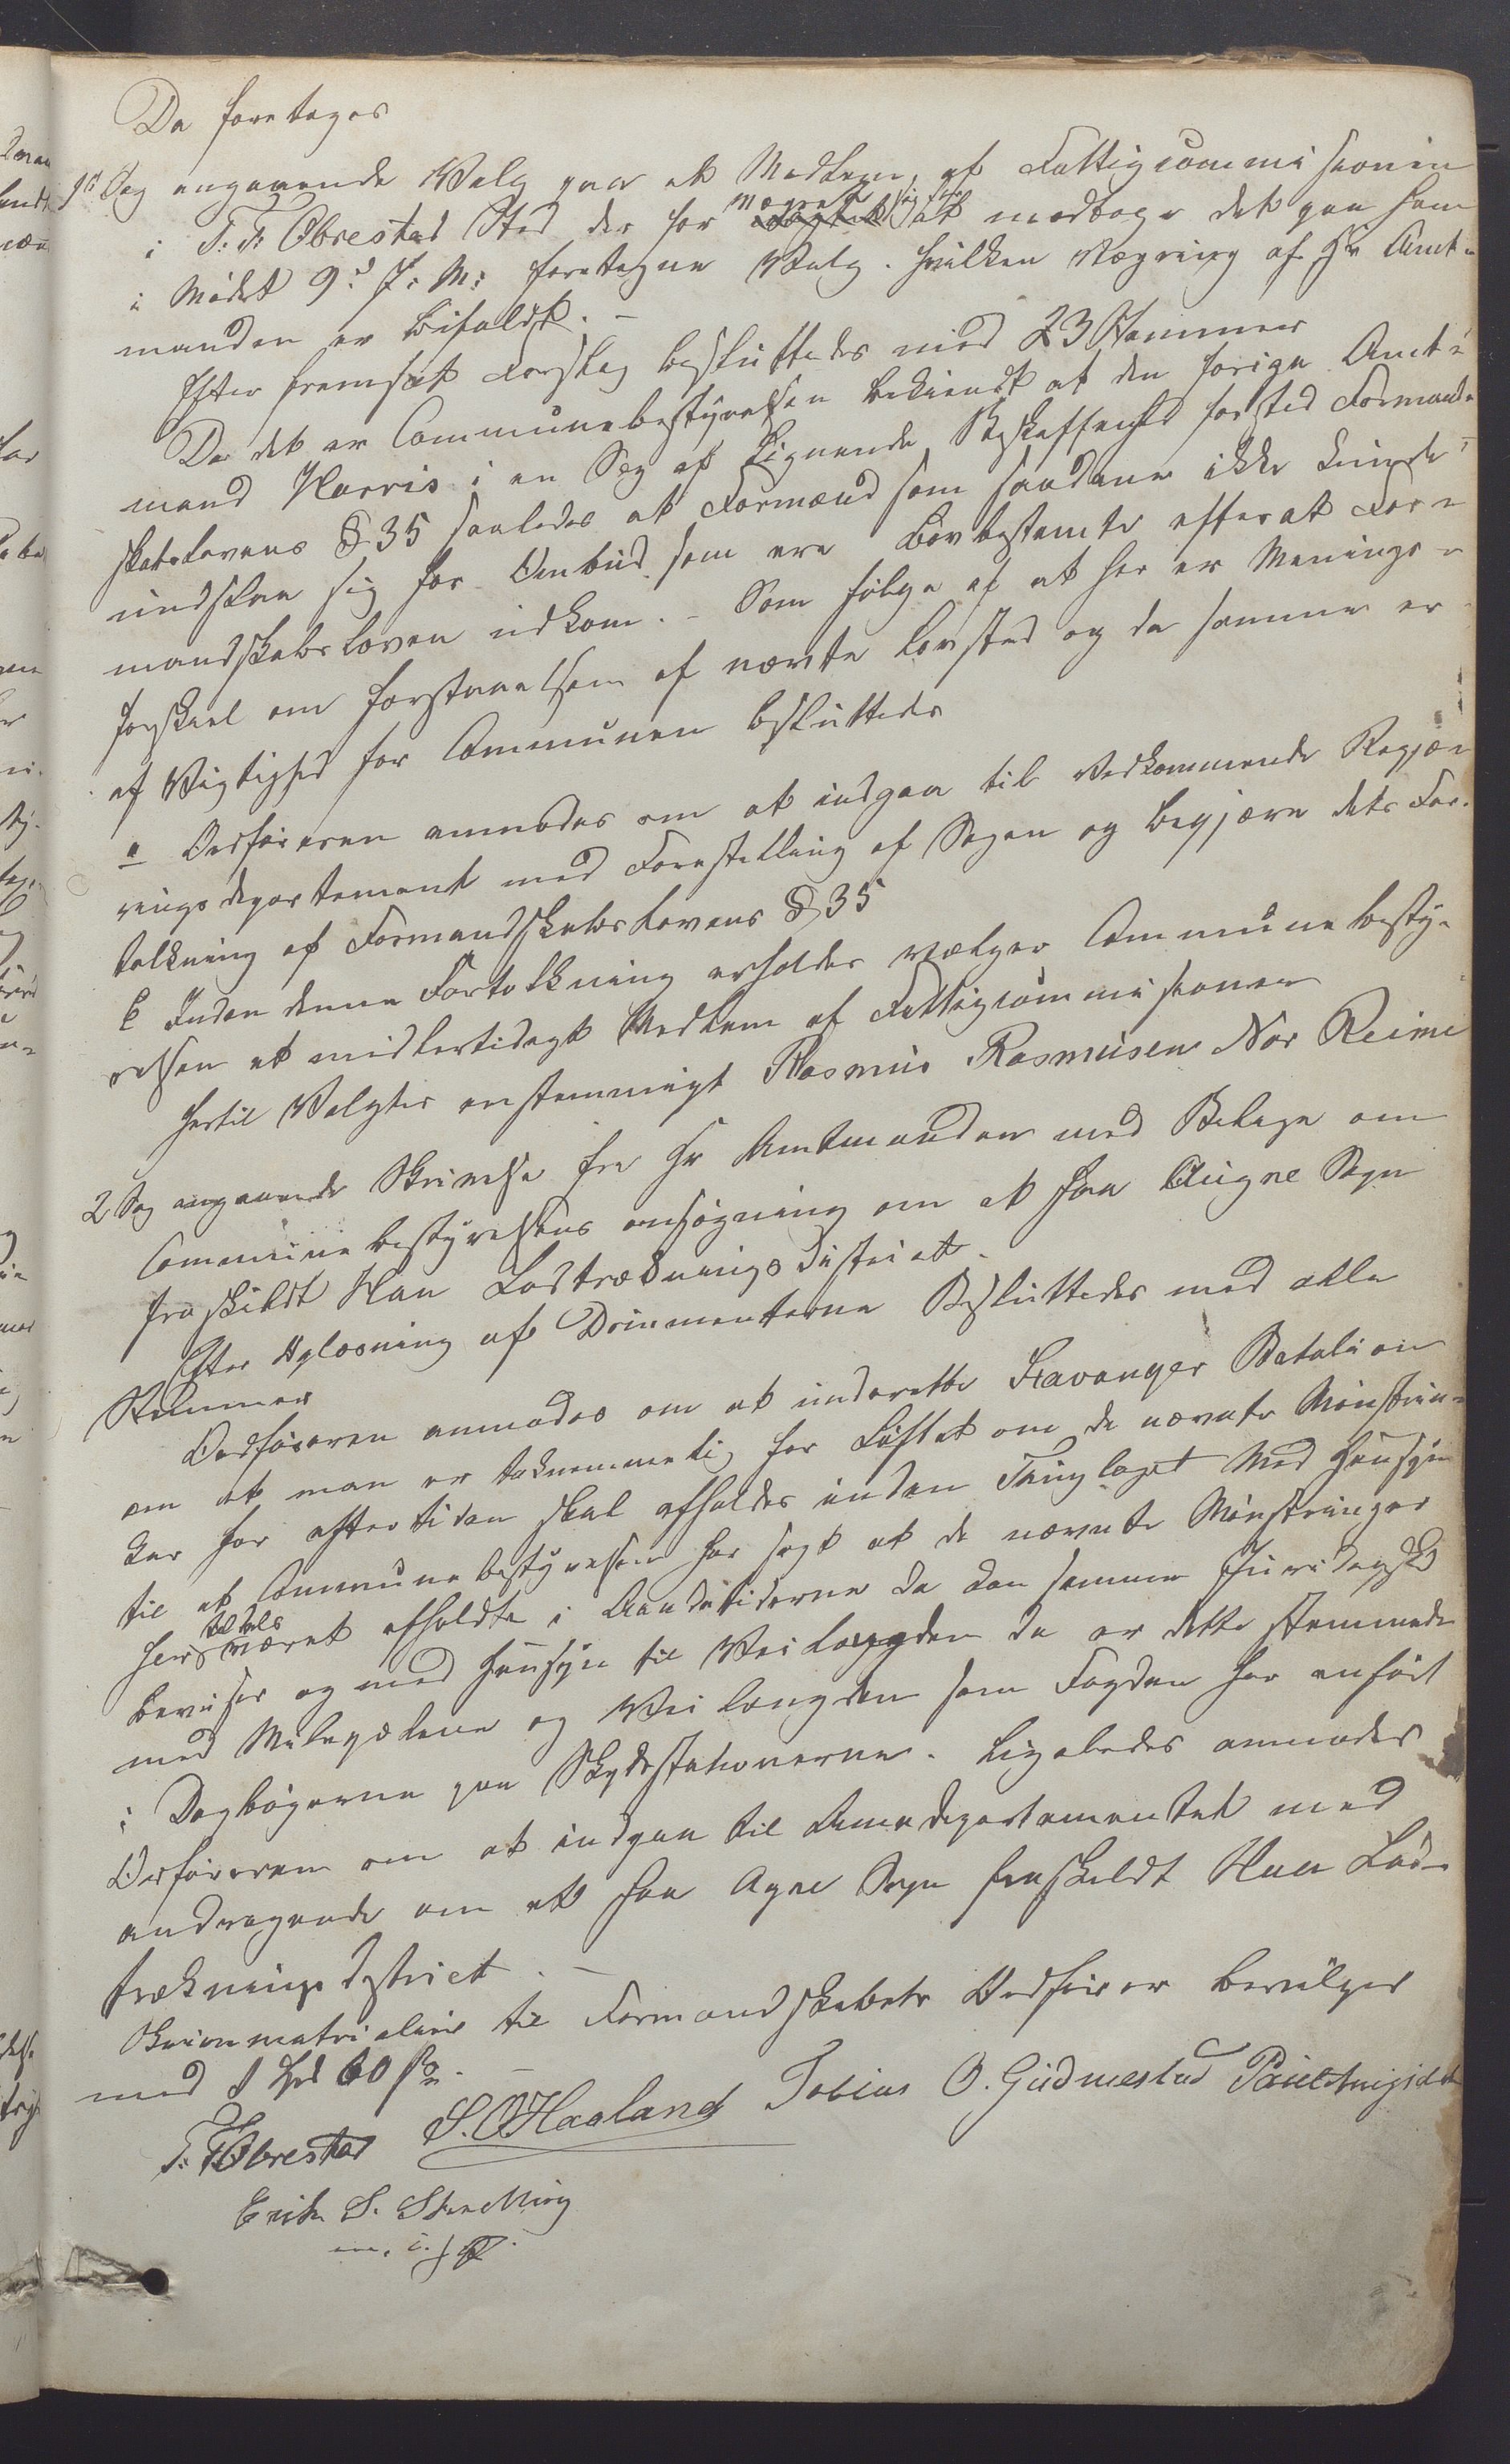 Da foretoges
1st Sag angaaende Valg paa et Medlem af Fattigcommissionen
i T. T. Obrestad Sted der har vægret sig for at modtage det paa ham
i Mødet 9d f: M: foretagne Valg. hvilken Vægring af Hr Amt-
manden er bifaldt. –
Efter fremsat Forslag besluttedes med 23 Stemmer
Da det er Communebestyrelsen bekiendt at den forige Amt-
mand Harris i en Sag af Lignende Beskaffenhed forstod Formand-
skabslovens § 35 saaledes at Formænd som saadanne ikke kunde
undslaa sig for Ombud som ere Lovbestemte efterat For-
mandskabsloven udkom. – Som følge af at her er Menings-
forskiel om forstaaelsen af nævnte Lovsted og da samme er
af Vigtighed for Communen besluttedes
a Ordføreren anmodes om at indgaa til Vedkommende Regjæ-
ringsdepartement med Forestilling af Sagen og begjære dets For-
tolkning af Formandskabslovens § 35
b Inden denne Fortolkning erholdes vælger Communebesty-
relsen et midlertidigt Medlem af Fattigcommissionen
hertil Valgtes enstemmigt Rasmus Rasmusen Nor Reime
2 Sag angaaende Skrivelse fra Hr Amtmanden med Bilage om
Communebestyrelsens ansøgning om at faa Augne Sogn
fraskildt Haa Lodtrækningsdistrict.
Efter Oplæsning af Documenterne Besluttedes med alle
Stemmer
Ordføreren anmodes om at underrette Stavanger Batalion
om at man er taknemmelig for Løftet om de nævnte Mønstrin-
ger for eftertiden skal afholdes inden Tinglaget Med Hensyn
til at Communebestyrelsen har sagt at de nævnte Mønstringer
har tildels været afholdte i Aandetiderne da kan samme
bevises og med Hensyn til Veilængden da er dette stemmende
med Milepælene og Veilængden som Fogden har anført
i Dagbøgerne paa Skydsstationerne. Ligeledes anmodes
Ordføreren om at indgaa til Armedepartementet med
andragende om at faa Ogne Sogn fraskildt Haa Lod-
trækningsdistrict. –
Skrivematrialier til Formandskabets Ordfører bevilges
med 1 Spd 60 s. –
T. T. Obrestad S. O Haaland Tobias O. Gudmestad
Erik S.
m. i. P.